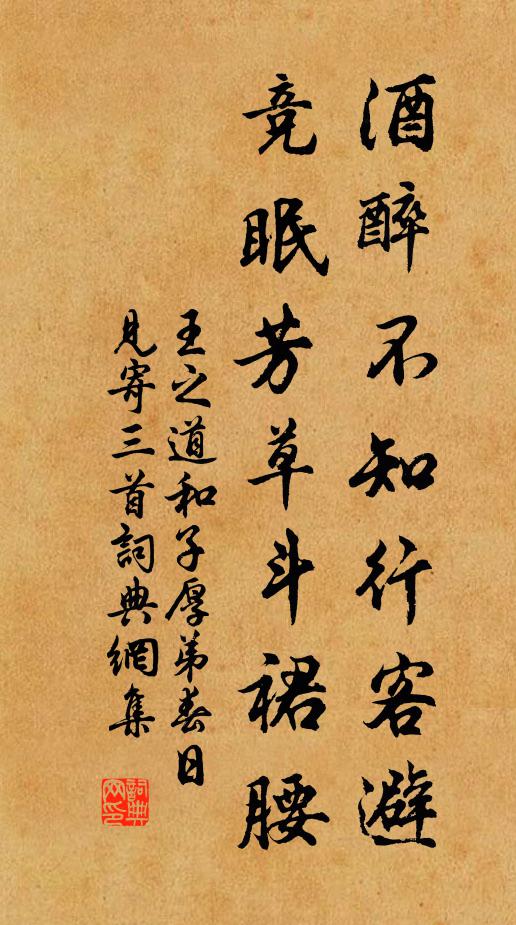 酒醉不知行客避
竞眠芳草斗裙腰
王之道和子厚弟春日
見寄三首詞典網集
詞典网印